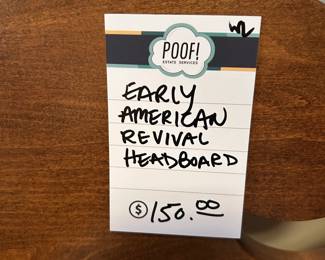 POOF!
ESTATE SERVICES
EARLY
AMERICAN
REVIVAL
HEADBOARD
$150.00